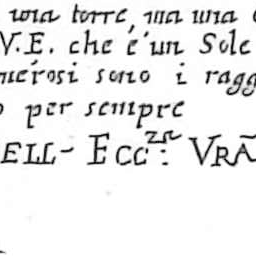 una torre, ma una
V.E. che è un Sole
merosi sono i ragg
per sempre
ELL- ECC.ZA: VRÃ